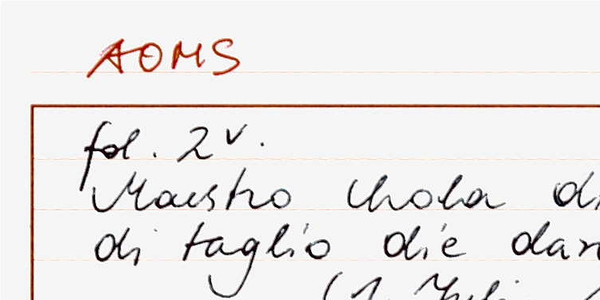 AOMS
fol. 2v.
Maestro Chola di
di taglio die dar
(1. Juli